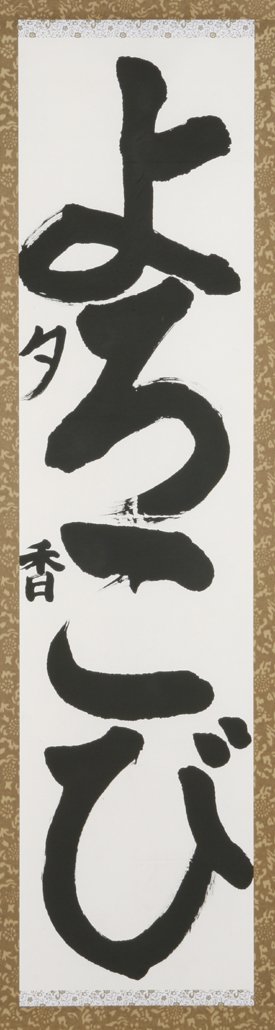 よろこび
夕香